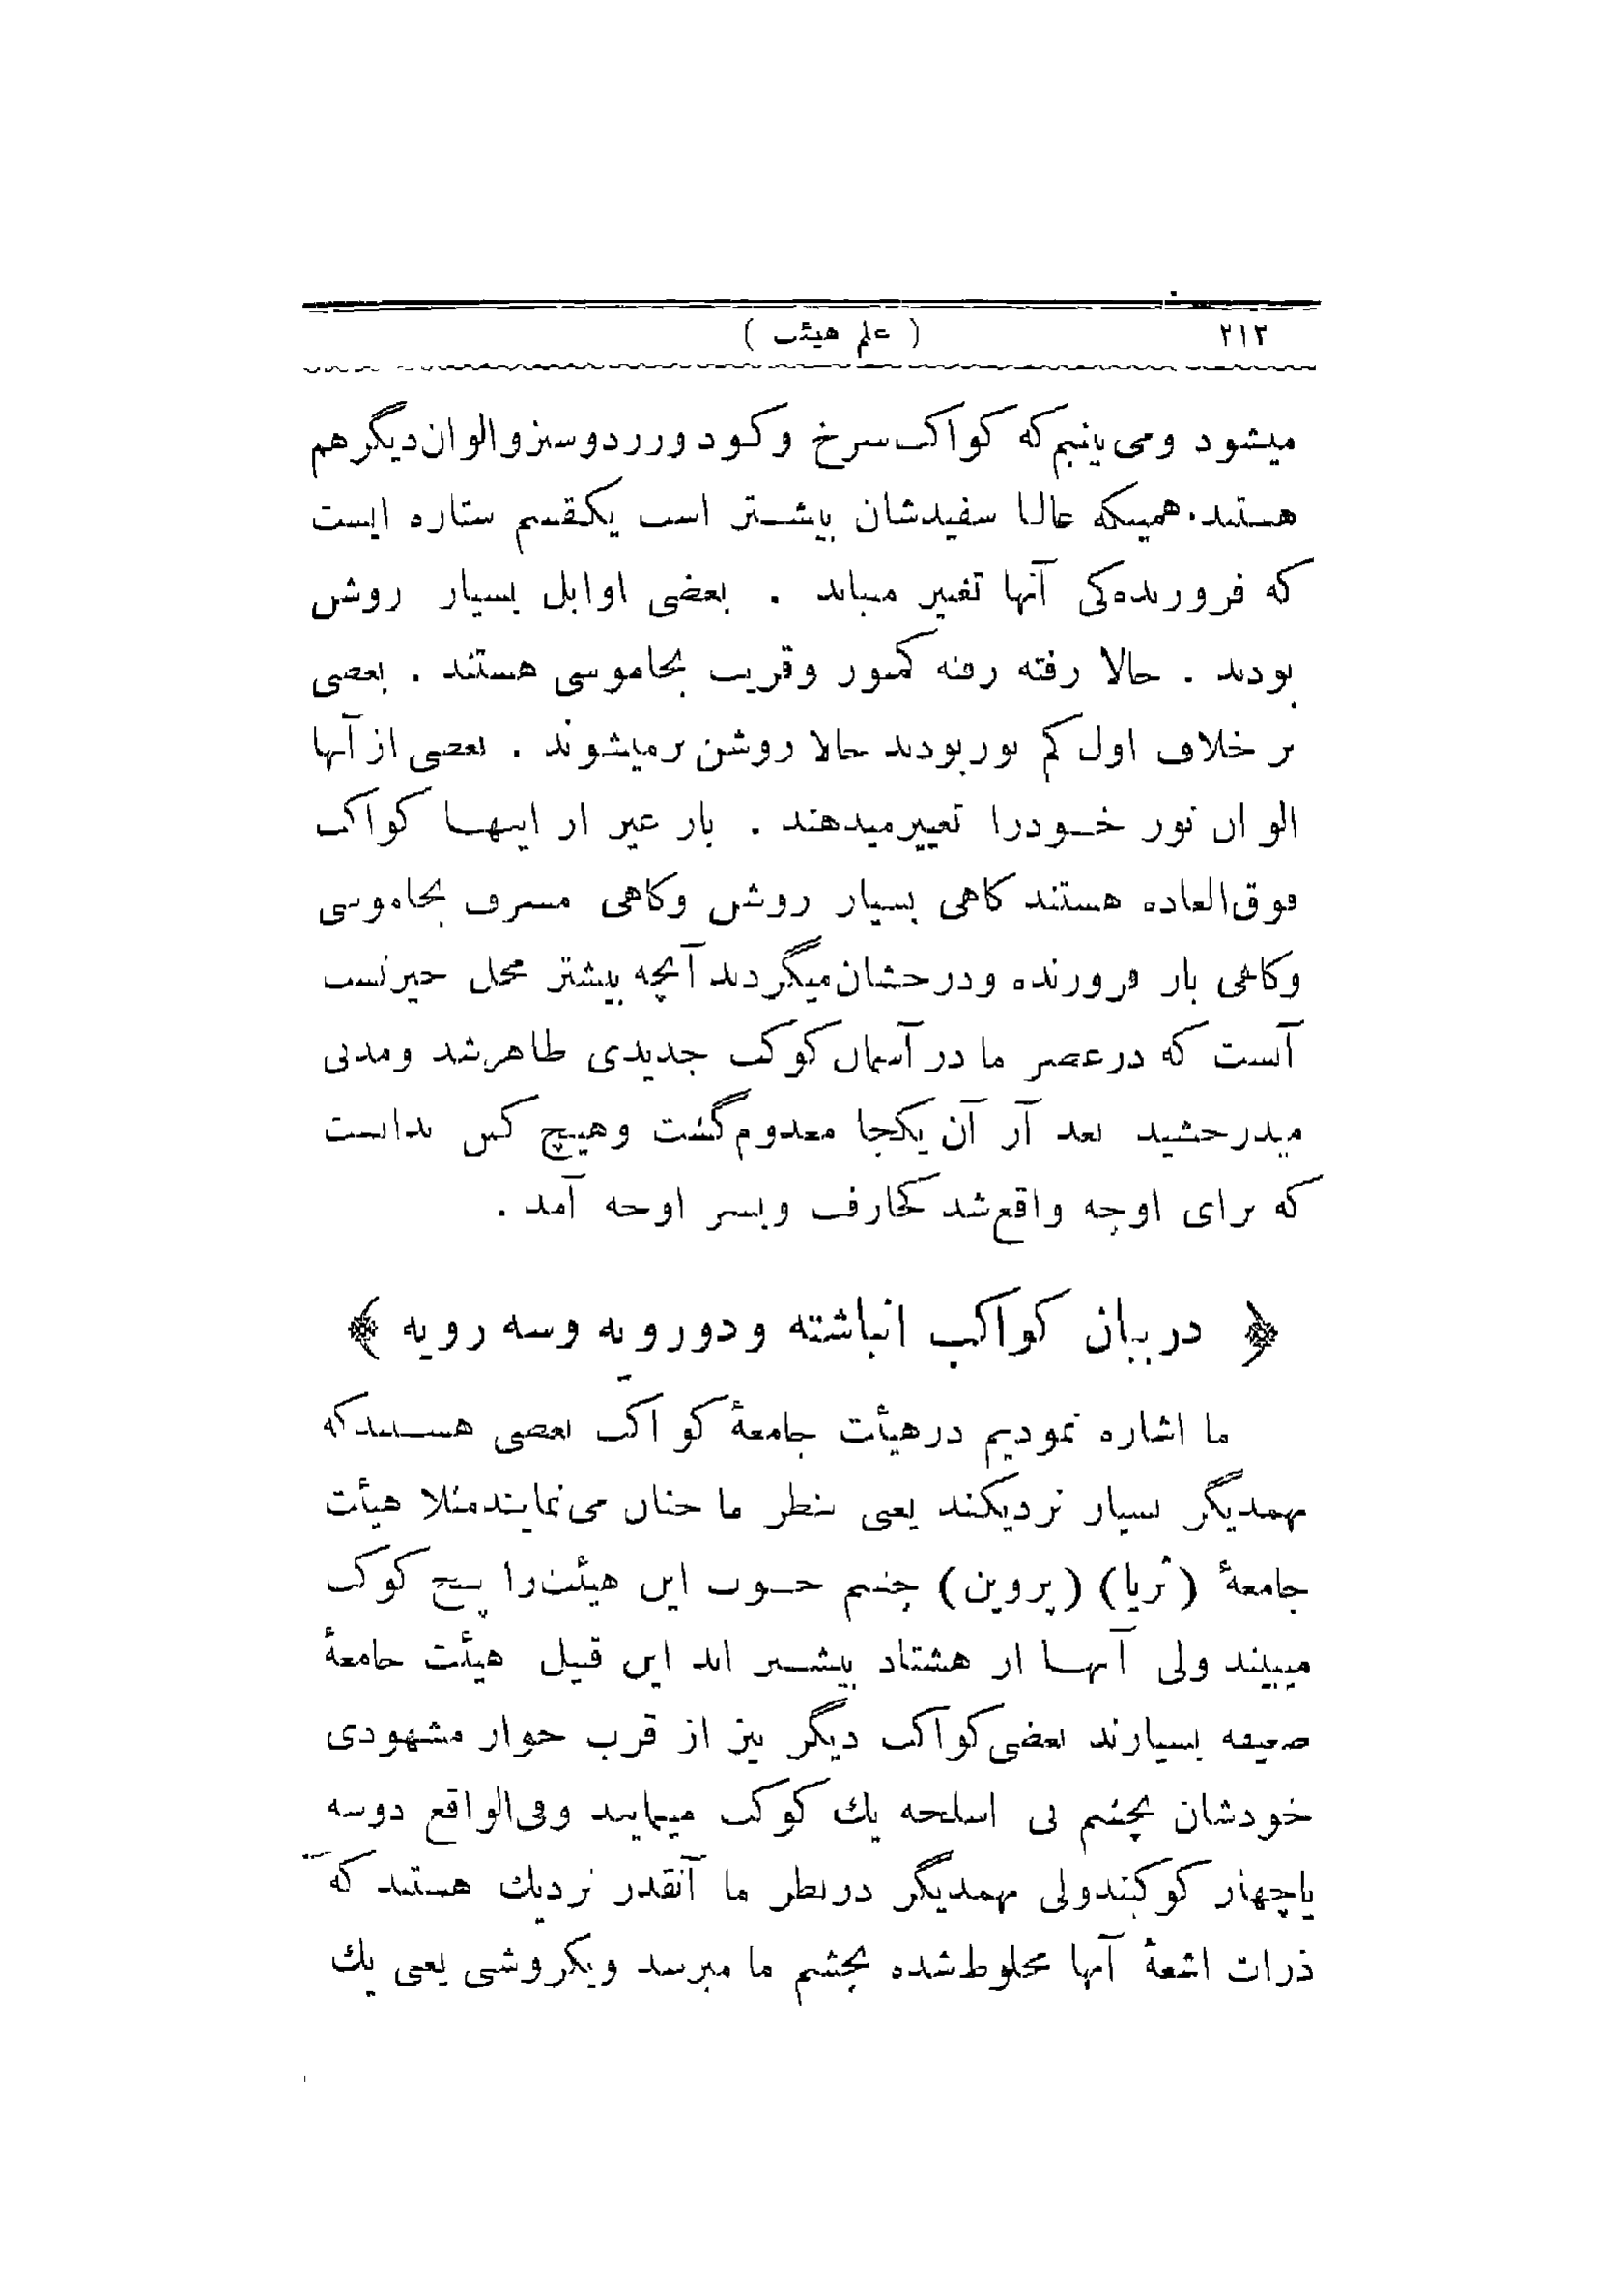 ۲۱۲ ( علم هیئت )
میشود ومی‌بینیم که کواکب سرخ وکبود وزرد وسبز والوان دیگر هم
هستند. همینکه غالبا سفیدشان بیشتر است یکقسم ستاره ایست
که فروزنده‌کی آنها تغییر میابد . بعضی اوایل بسیار روشن
بودند . حالا رفته رفته کمنور وقریب بخاموسی هستند . بعضی
بر خلاف اول کم نور بودند حالا روشن تر میشوند . بعضی از آنها
الوان نور خودرا تغییر میدهند . باز غیر از اینها کواکب
فوق‌العاده هستند کاهی بسیار روشن وکاهی مسرف بخاموسی
وکاهی باز فروزنده ودرخشان میگردند آنچه بیشتر محل حیرتست
آنست که درعصر ما در آسمان کوکب جدیدی ظاهر شد ومدتی
میدرخشید بعد از آن یکجا معدوم گشت وهیچ کس ندانست
که برای اوچه واقع شد کجا رفت وبسر اوچه آمد .
﴿ در بیان کواکب انباشته ودورویه وسه رویه ﴾
ما اشاره نمودیم درهیأت جامعهٔ کواکب بعضی هستند که
بهمدیگر بسیار نزدیکند یعنی بنظر ما چنان می‌نمایند مثلا هیأت
جامعهٔ (ثریا) (پروین) چشم خوب این هیئت را پنج کوکب
میبیند ولی آنها از هشتاد بیشتر اند این قبیل هیئت جامعهٔ
ضعیفه بسیارند بعضی کواکب دیگر نیز از قرب جوار مشهودی
خودشان بچشم بی اسلحه یك کوکب مینمایند وفی‌الواقع دوسه
یاچهار کوکبند ولی بهمدیگر درنظر ما آنقدر نزدیك هستند که
ذرات اشعهٔ آنها مخلوط شده بچشم ما میرسد وبکروشی یعنی یك